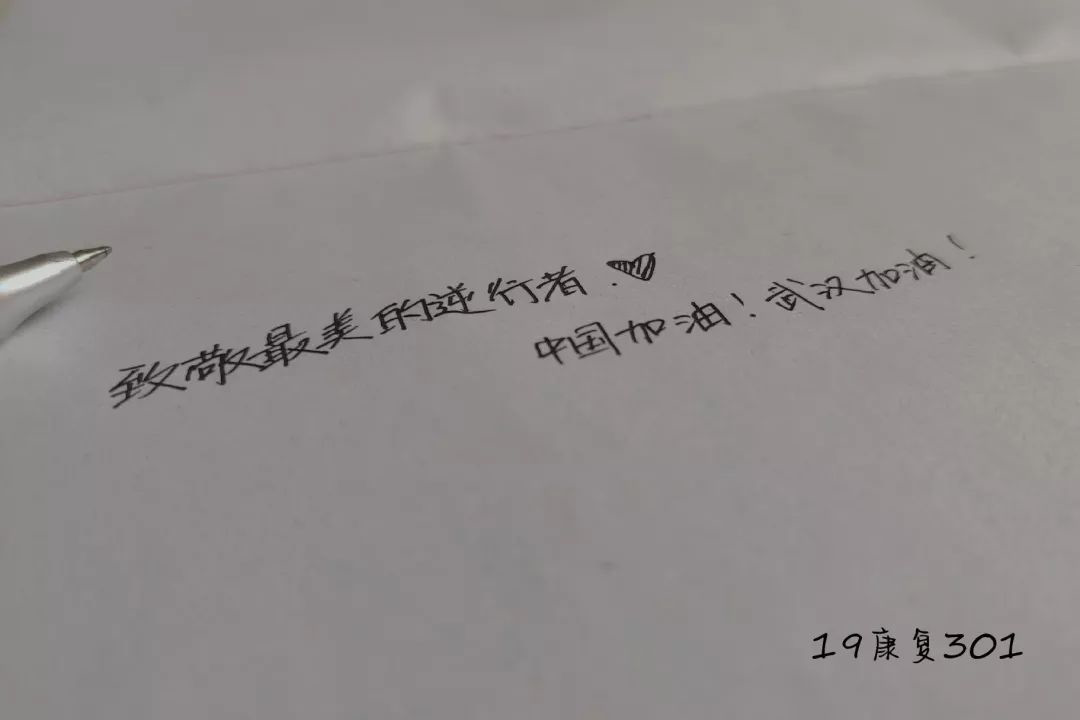 致敬最美的逆行者.
中国加油!武汉加油!
19康复301